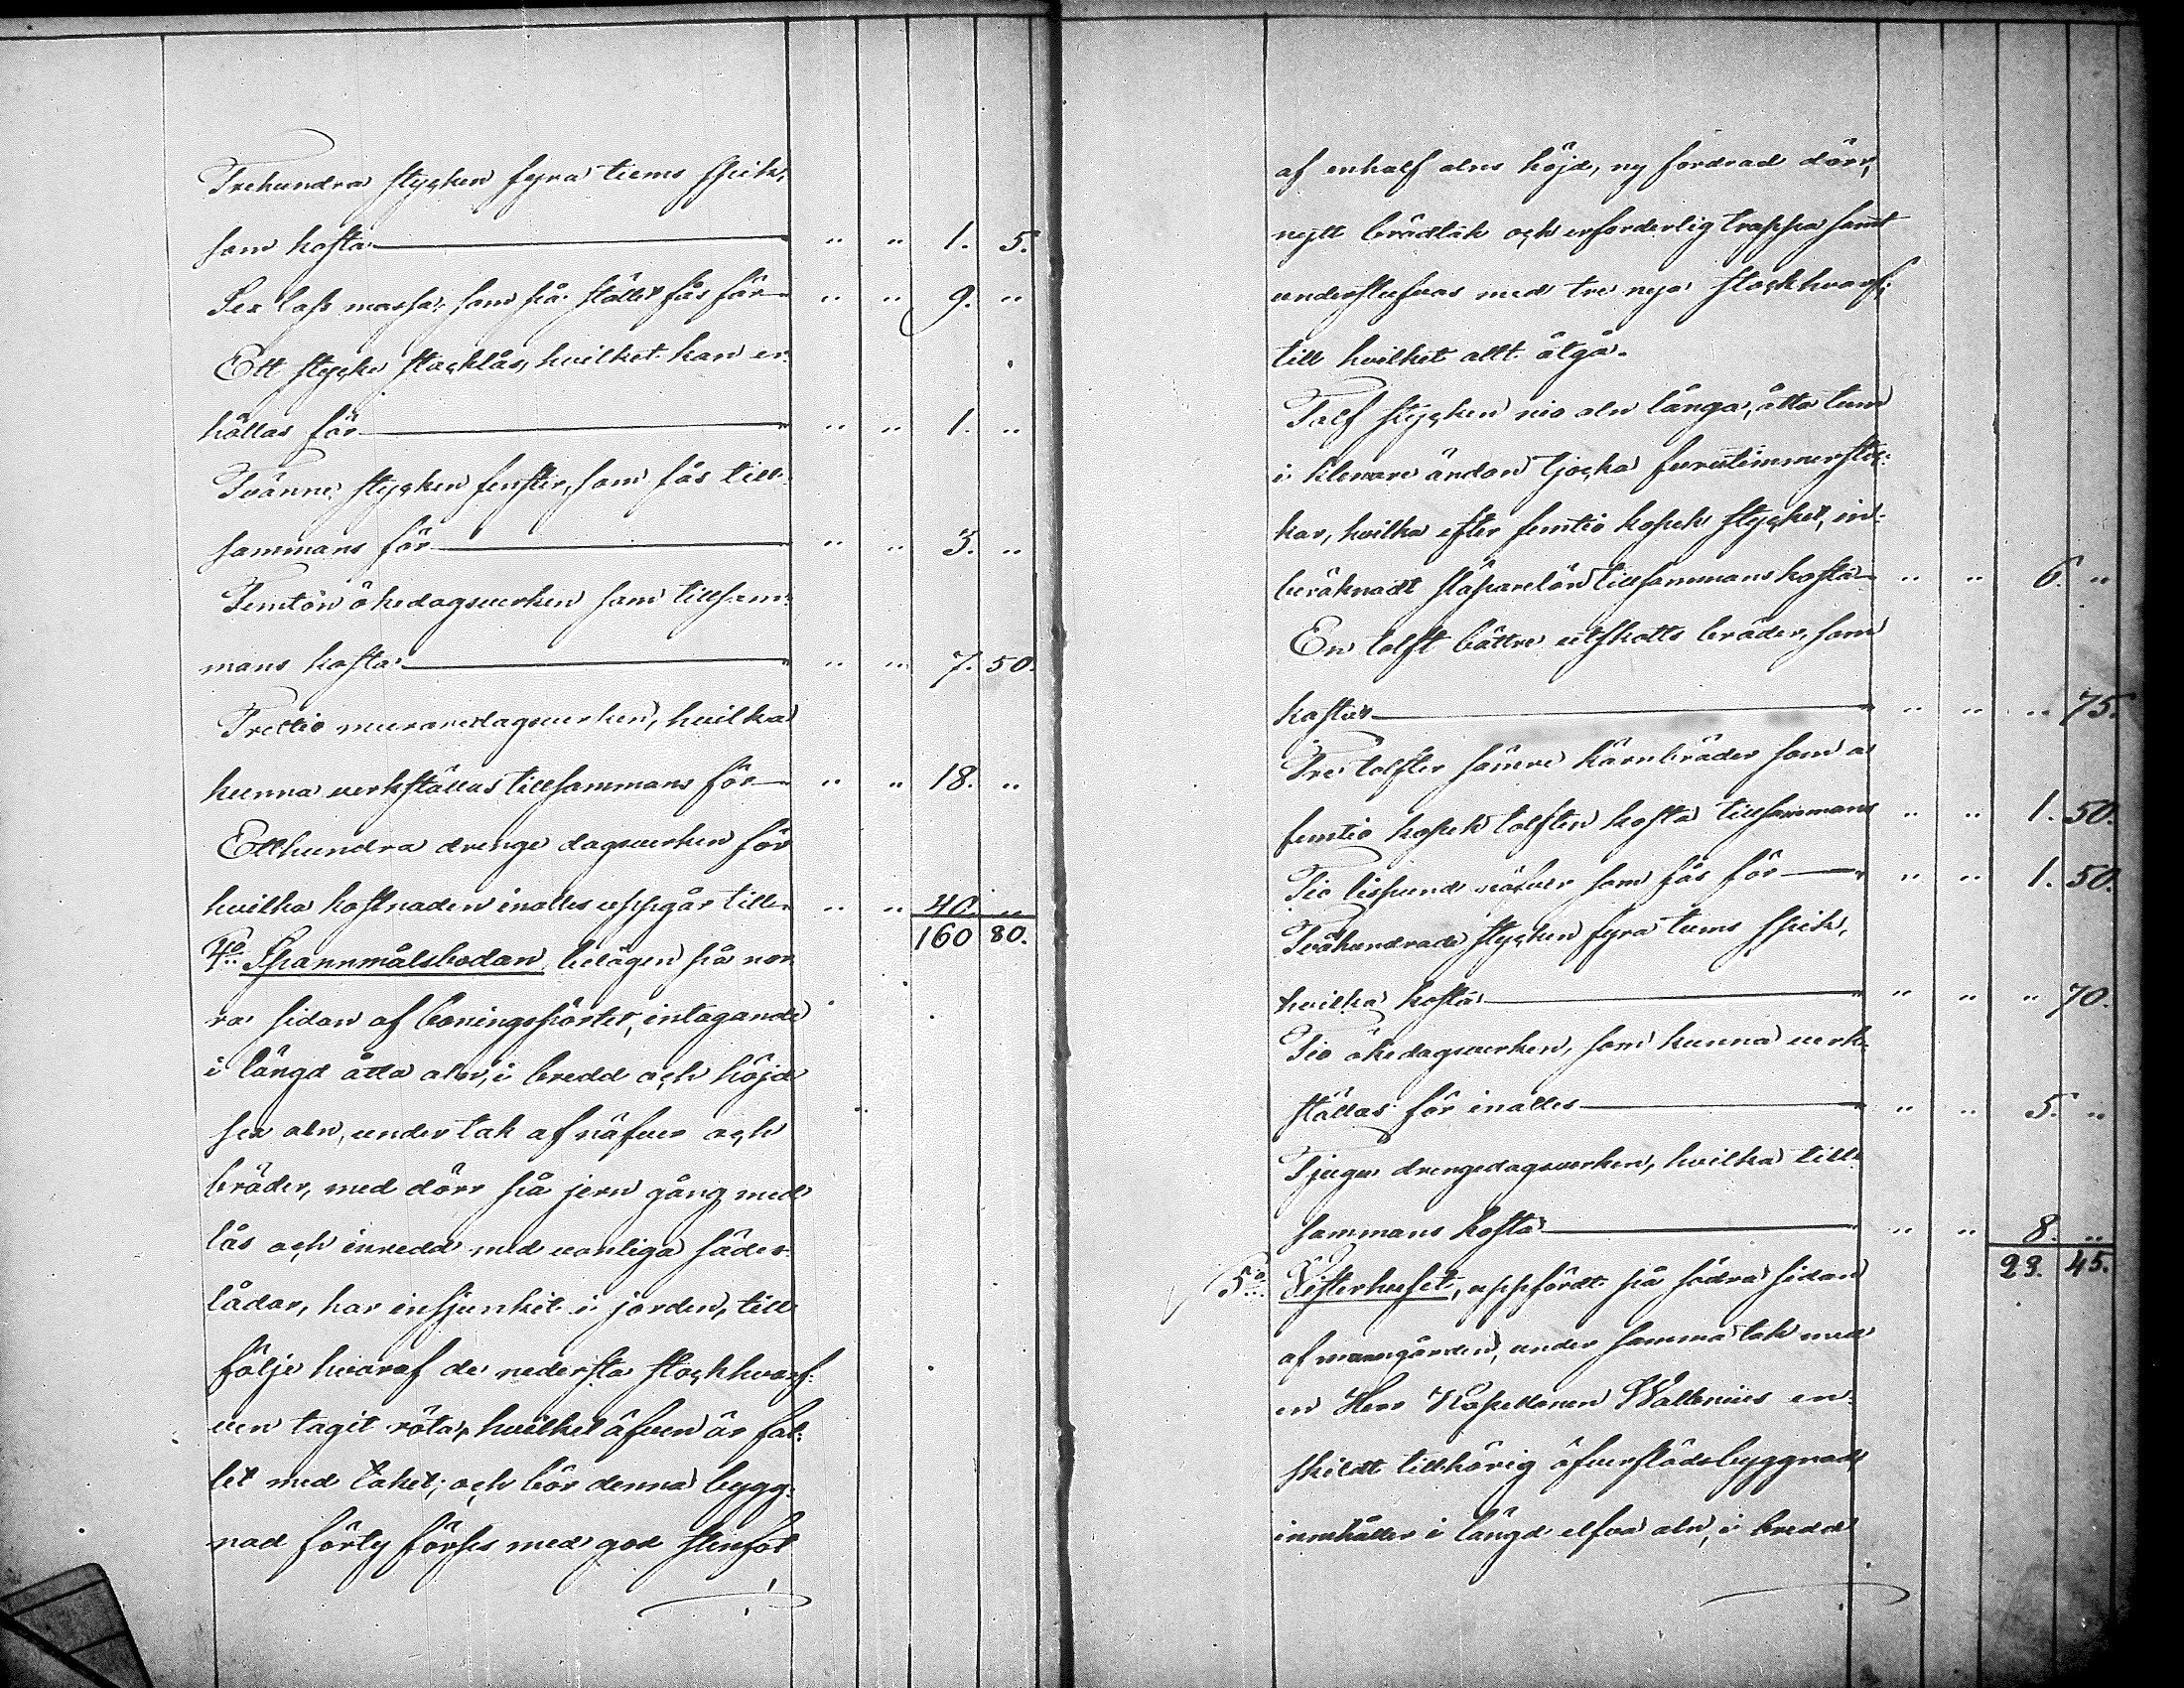 Trehundra stycken fyra tums spik,
som kosta " " 1. 5.
Sex lass mossa, som på stället fås för " " 9. "
Ett stycke stocklås, hvilket kan er-
hållas för " " 1. "
Tvänne stycken fenster, som fås till-
sammans för " " 3. "
Femton ökedagsverken som tillsam-
mans kosta " " 7. 50.
Trettio muraredagsverken, hvilka
kunna verkställas tillsammans för " " 18. "
Etthundra drenge dagsverken för
hvilka kostnaden inalles uppgår till " " 40. "
160 80.
4o Spannmålsbodan, belägen på nor-
ra sidan af boningspörtet, intagande
i längd åtta alnr, i bredd och höjd
sex aln, under tak af näfver och
bräder, med dörr på jern gång med
lås och inredd med vanliga sädes-
lådar, har insjunkit i jorden, till
följe hvaraf de nedersta stockhvarf-
ven tagit röta, hvilket äfven är fal-
let med taket; och bör denna bygg-
nad förty förses med god stenfot
af enhalf alns höjd, ny fordrad dörr,
nytt brädtak och erforderlig trappa samt
understufvas med tre nya stockhvarf;
till hvilket allt åtgå.
Tolf stycken nio aln långa, åtta tum
i klenare ändan tjocka furutimmerstoc-
kar, hvilka efter femtio kopek stycket, in-
beräknadt släparelön tillsammans kosta " " 6. "
En tolft bättre utskotts bräder, som
kostar " " " 75.
Tre tolfter sämre kärnbräder som a
femtio kopek tolften kosta tillsammans " " 1. 50.
Tio lispund näfver som fås för " " 1. 50.
Tvåhundrade stycken fyra tums spik,
hvilka kosta " " " 70.
Tio ökedagsverken, som kunna verk-
ställas för inalles " " 5. "
Tjugu drengedagsverken, hvilka till-
sammans kosta " " 8. "
23. 45.
5o Visterhuset, uppfördt på södra sidan
af manngården, under samma tak med
en Herr Kapellanen Wallenius en-
skildt tillhörig öfverflödsbyggnad,
innehåller i längd elfva aln, i bredd